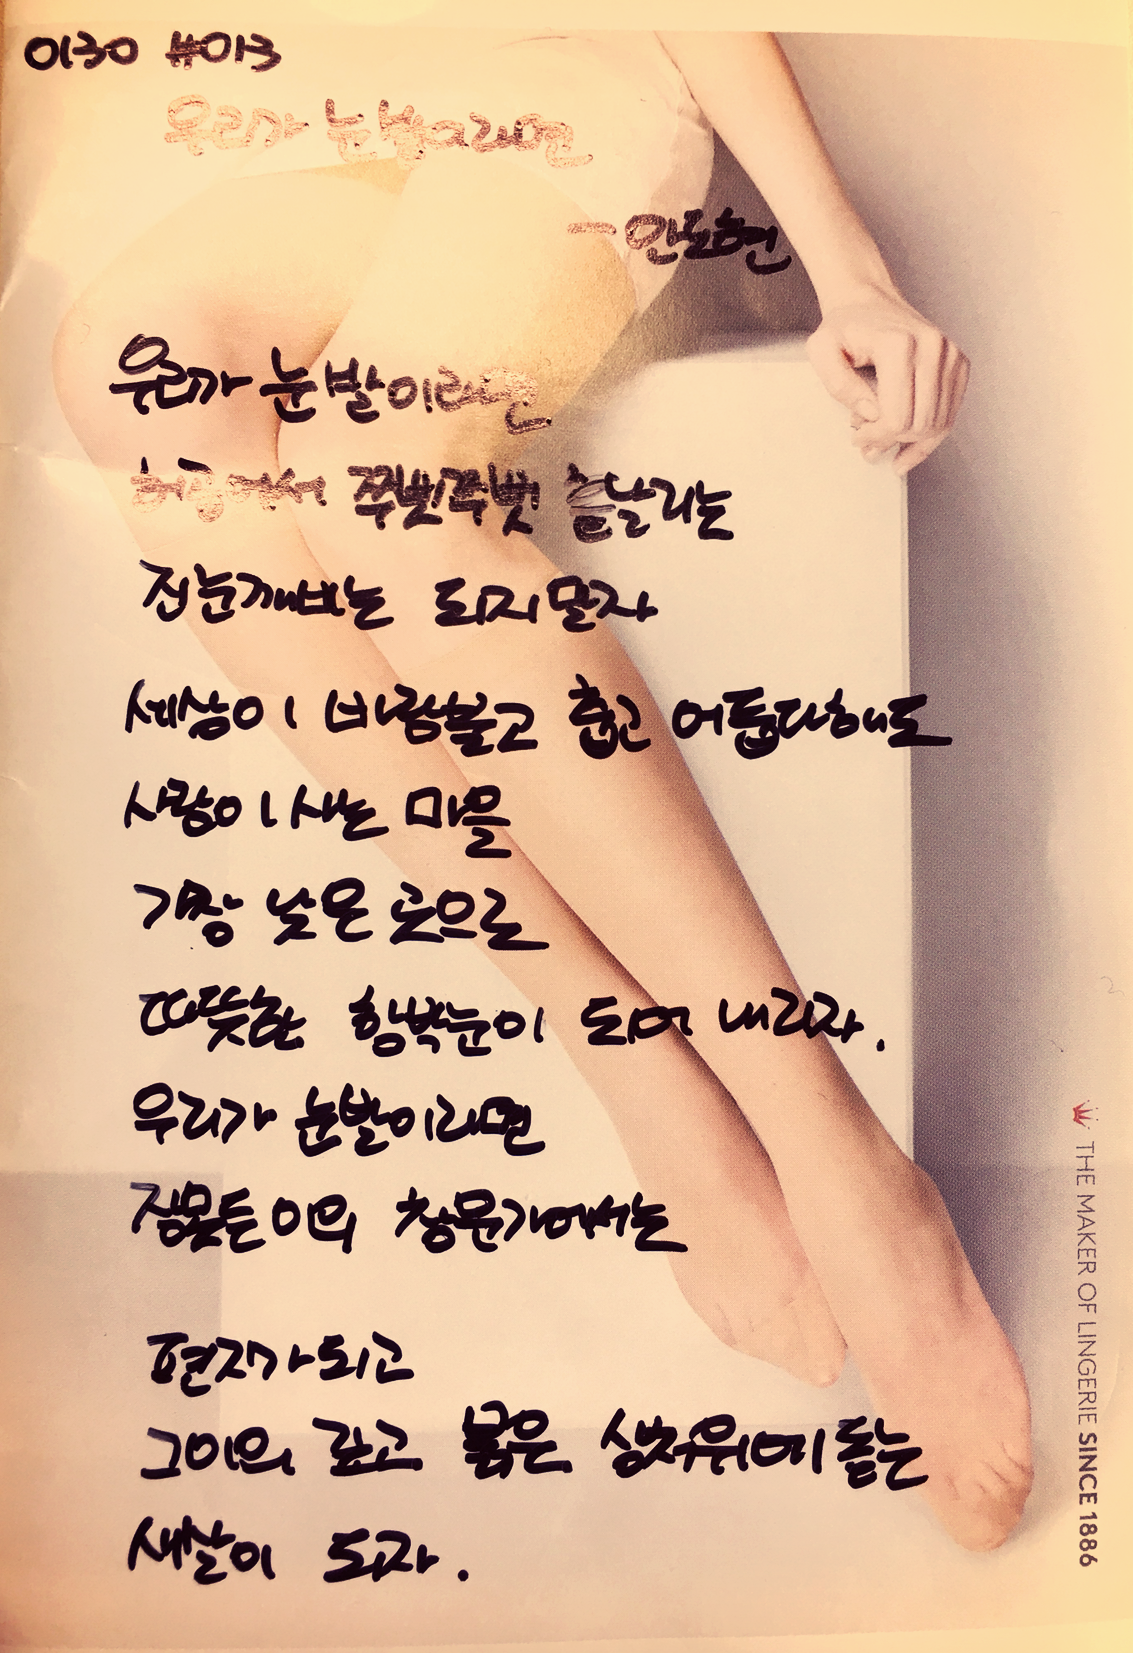 0130 #013
우리가 눈발이라면
-안도현
우리가 눈발이라면
허공에서 쭈빗쭈빗 흩날리는
진눈깨비는 되지 말자
세상이 바람불고 춥고 어둡다해도
사람이 사는 마을
가장 낮은 곳으로
따뜻한 함박눈이 되어 내리자.
우리가 눈발이라면
잠못든 이의 창문가에서는
편지가 되고
그이의 깊고 붉은 상처위에 돋는
새살이 되자.
THE MAKER OF LINGERIE SINCE 1886